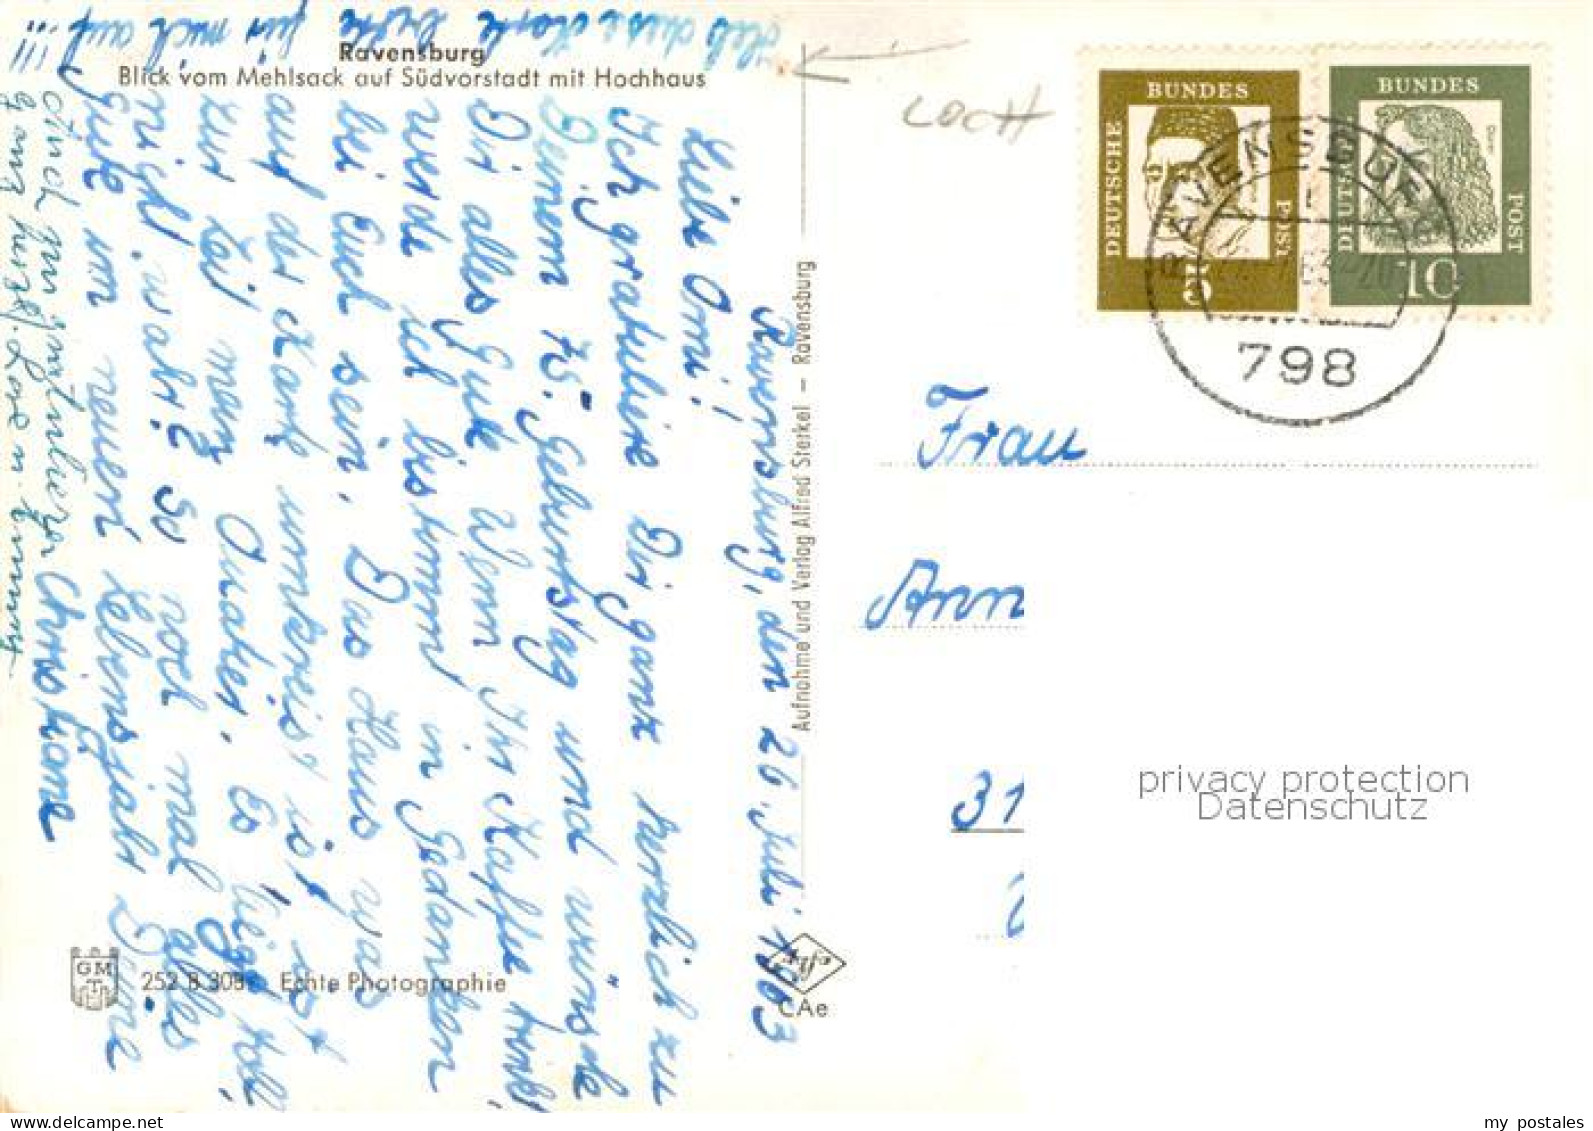 Ravensburg
Blick vom Mehlsack auf Südvorstadt mit Hochhaus
Ravensburg, den 26. Juli 1963
Liebe Omi!
Ich gratuliere Dir ganz herzlich zu
Deinem 75. Geburtstag und wünsche
Dir alles Gute. Wenn Ihr Kaffee trinkt
werde ich bestimmt in Gedanken
bei Euch sein. Das Haus was
auf der Karte umkreist ist ist
zur Zeit mein Quatier. Es liegt toll
nicht wahr? So noch mal alles
Gute im neuen Lebensjahr Deine
Christiane
Auch zu gratulieren
ganz herzl.
diese Karte bitte für mich auf!!!
LOCH
Aufnahme und Verlag Alfred Sterkel — Ravensburg
GM
252 B 308
Echte Photographie
CAe
DEUTSCHE
BUNDES
POST
5
DEUTSCHE
BUNDES
POST
10
RAVENSBURG
798
Frau
Ann
31
privacy protection
Datenschutz
www.ansichtskarten-center.de
my_postales